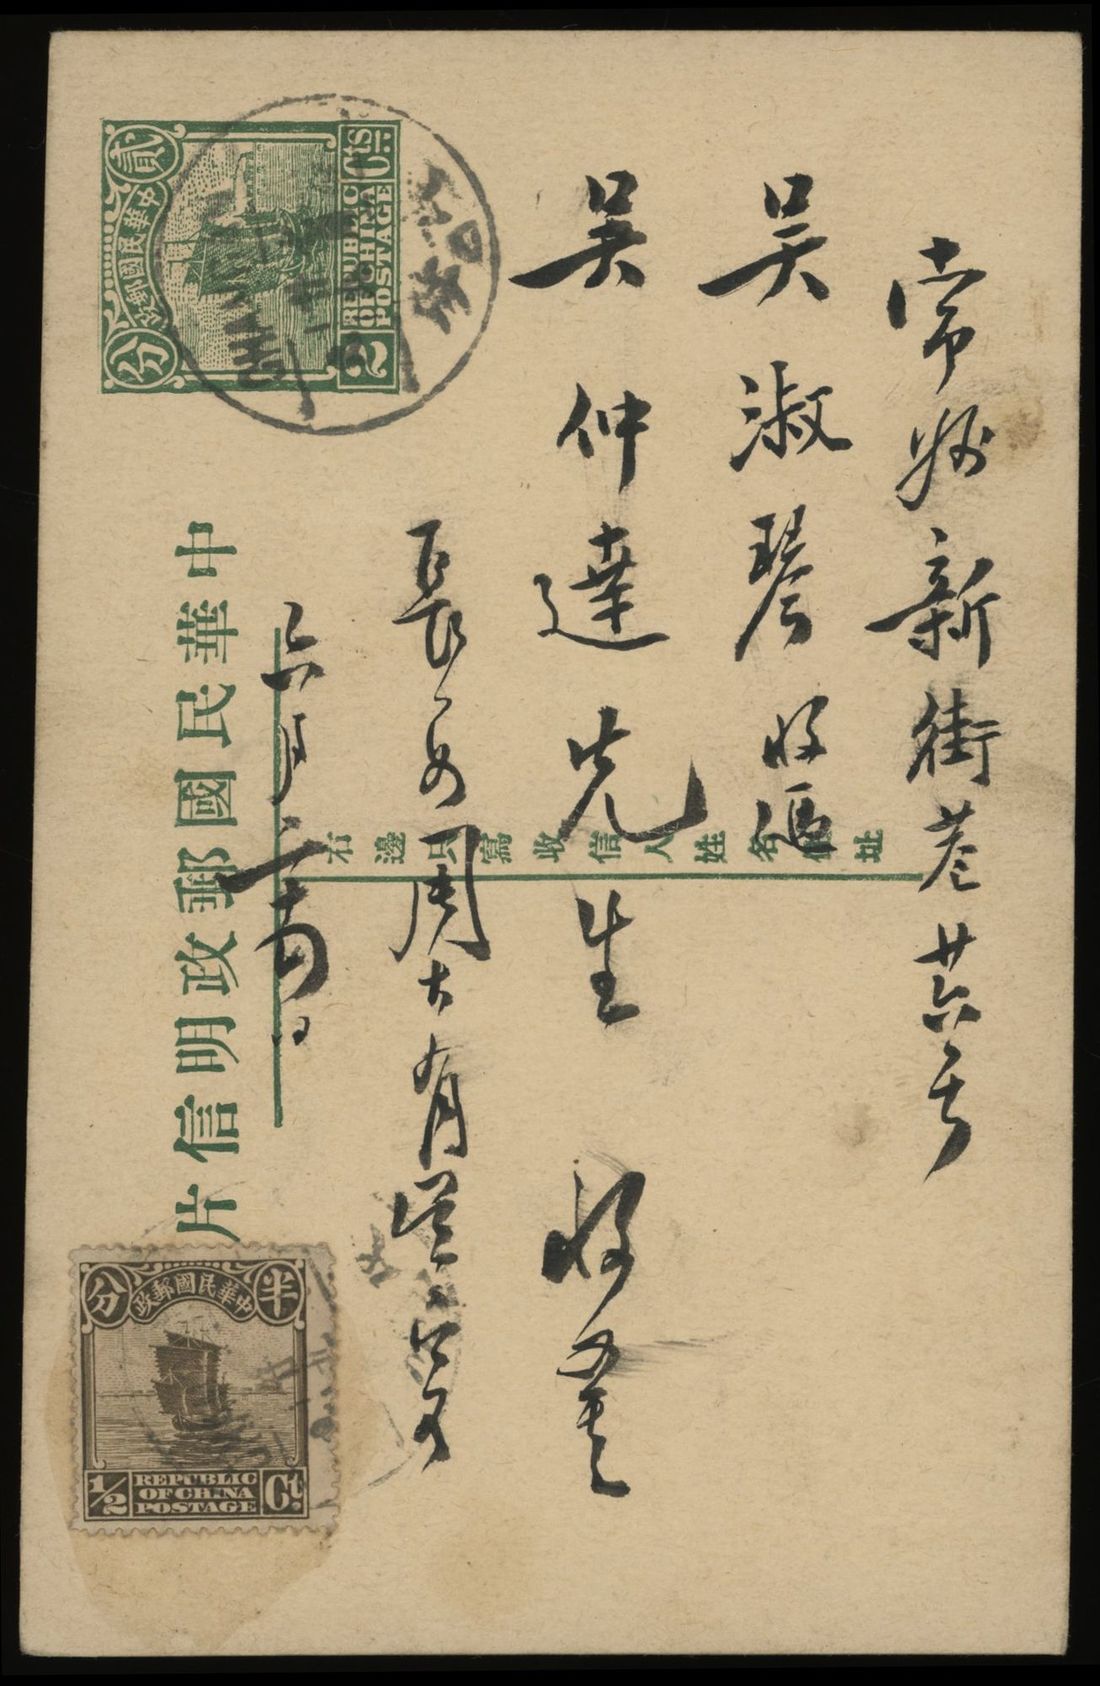 常州新街巷廿六号
吳淑琴收
吳仲達先生 收
長安周大有
六月二十
中華民國郵政明信片
右邊只寫收信人姓名住址
中華民國郵政
貳
分
2 Cts
REPUBLIC
OF CHINA
POSTAGE
中華民國郵政
半
分
1/2
REPUBLIC
OF CHINA
POSTAGE
Ct.